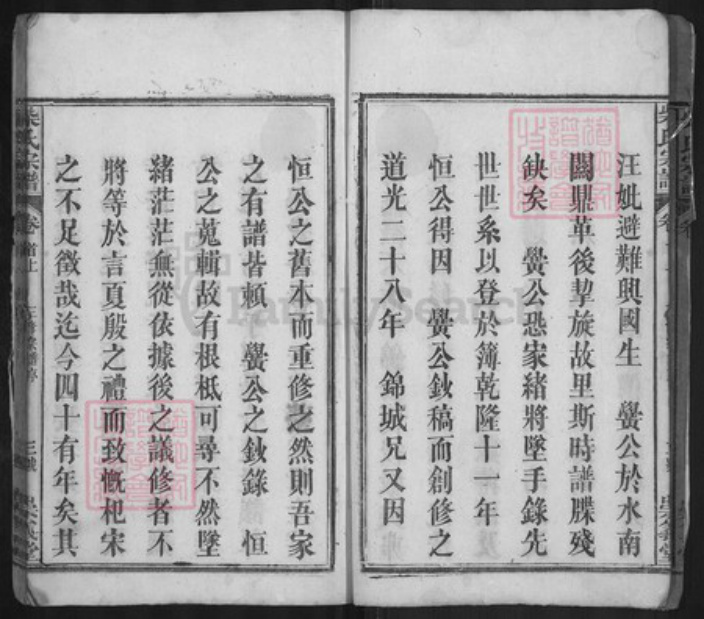 汪妣避難興國生　黌公於水南
闗鼎革後挈旋故里斯時譜牒殘
缺矣　黌公恐家緒將墜手錄先
世世系以登於簿乾隆十一年
恒公得因　黌公鈔稿而創修之
道光二十八年　錦城兄又因
恒公之舊本而重修之然則吾家
之有譜皆賴　黌公之鈔錄　恒
公之蒐輯故有根柢可尋不然墜
緒茫茫無從依據後之議修者不
將等於言夏殷之禮而致慨杞宋
之不足徵哉迄今四十有年矣其
柴氏宗譜
卷首上
FamilySearch